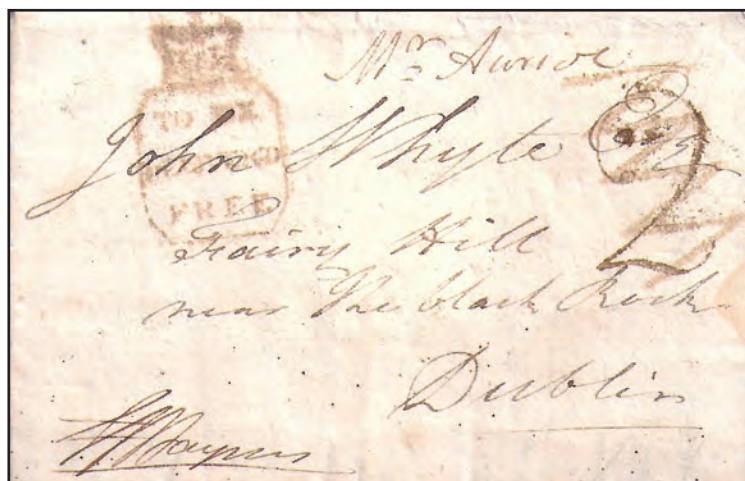 Mr. Auriol
TO BE
DELIVERED
FREE
John Whyte Esq
2
Fairy Hill
near The black Rock
Dublin